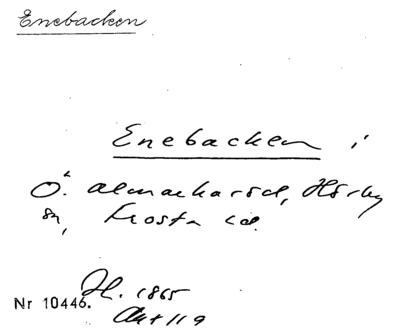 Enebacken
Enebacken i
Ö. Sallerup, Hörby
sn, Frosta hd.
H. 1865
Nr 10446. Akt 119